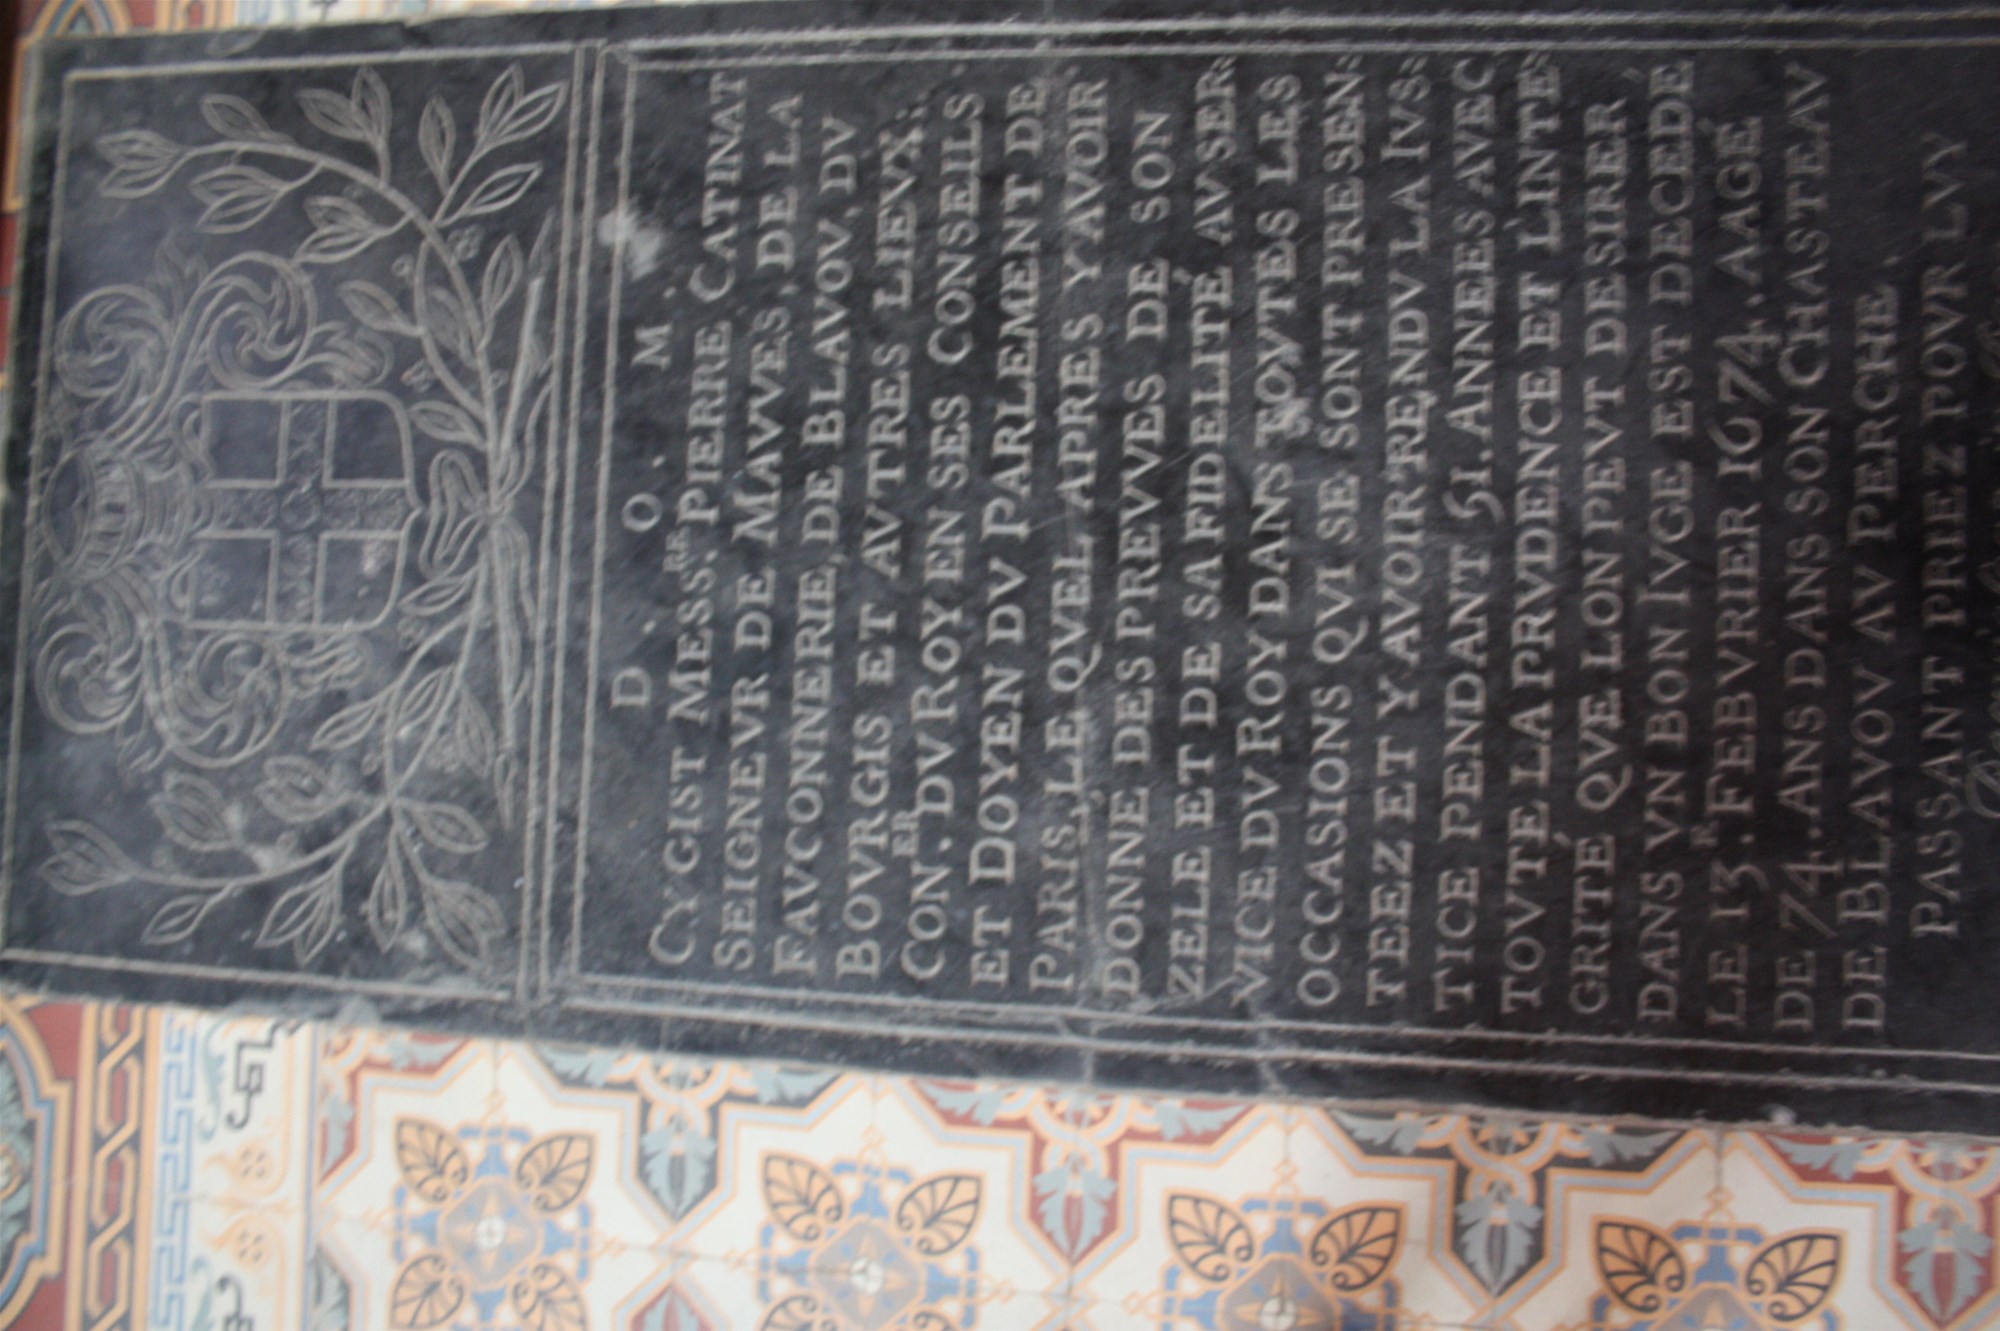 D. O. M.
CY GIST MESS.RE PIERRE CATINAT
SEIGNEVR DE MAVVES, DE LA
FAVCONNERIE, DE BLAVOV, DV
BOVRGIS ET AVTRES LIEVX.
CON.ER DV ROY EN SES CONSEILS
ET DOYEN DV PARLEMENT DE
PARIS, LE QVEL APRES Y AVOIR
DONNE DES PREVVES DE SON
ZELE ET DE SA FIDELITÉ AV SER=
VICE DV ROY DANS TOVTES LES
OCCASIONS QVI SE SONT PRESEN=
TEEZ ET Y AVOIR RENDV LA IVS=
TICE PENDANT 51. ANNEES AVEC
TOVTE LA PRVDENCE ET LINTE=
GRITÉ QVE LON PEVT DESIRER
DANS VN BON IVGE EST DECEDÉ
LE 13.R FEBVRIER 1674. AAGÉ
DE 74. ANS DANS SON CHASTEAV
DE BLAVOV AV PERCHE.
PASSANT PRIEZ POVR LVY